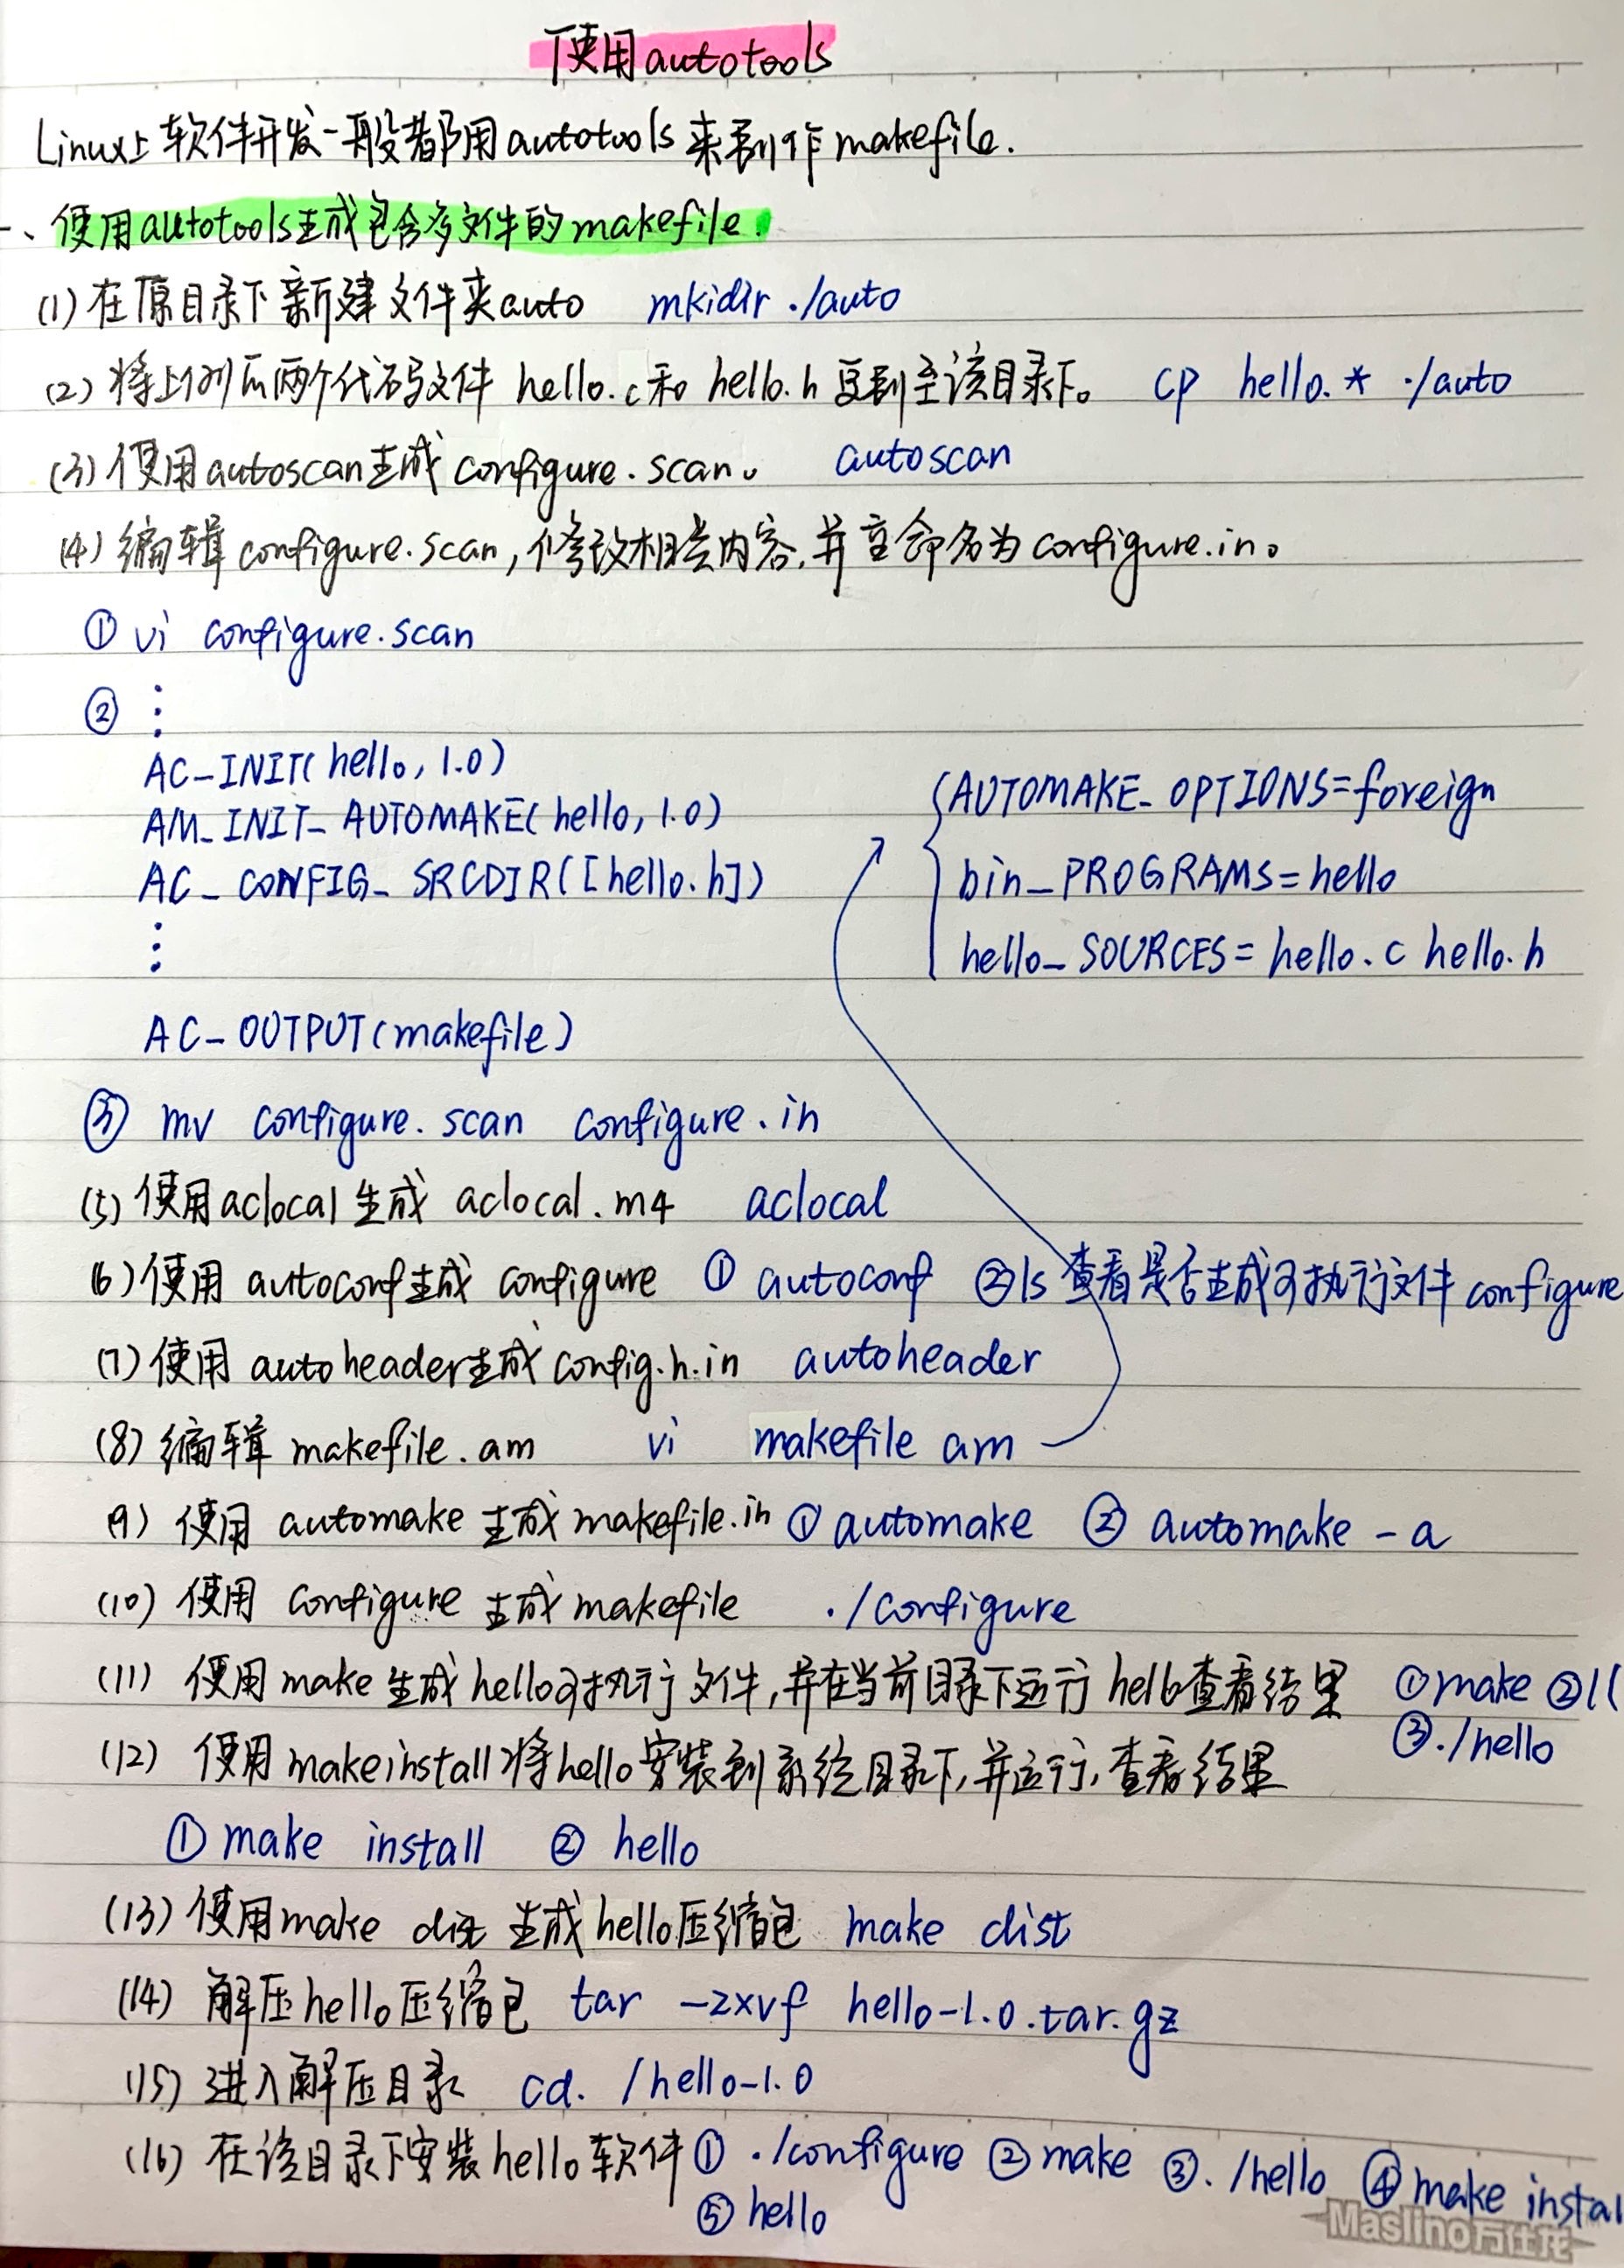 使用autotools
Linux上软件开发一般都用autotools来制作makefile.
一、使用autotools生成包含多文件的makefile.
(1) 在原目录下新建文件夹auto mkidir ./auto
(2) 将上例后两个代码文件 hello.c和 hello.h 复制至该目录下。 cp hello.* ./auto
(3) 使用autoscan生成 configure.scan。 autoscan
(4) 编辑 configure.scan,修改相关内容,并重命名为configure.in。
① vi configure.scan
② ⋮
AC_INIT(hello, 1.0)
AM_INIT_AUTOMAKE(hello, 1.0)
AC_CONFIG_SRCDIR([hello.h])
⋮
AC_OUTPUT(makefile)
{AUTOMAKE_OPTIONS=foreign
bin_PROGRAMS=hello
hello_SOURCES= hello.c hello.h
③ mv configure.scan configure.in
(5) 使用aclocal 生成 aclocal.m4 aclocal
(6) 使用 autoconf生成 configure ① autoconf ②ls 查看是否生成可执行文件 configure
(7) 使用 autoheader生成 config.h.in autoheader
(8) 编辑 makefile.am vi makefile am
(9) 使用 automake 生成 makefile.in ① automake ② automake -a
(10) 使用 configure 生成 makefile ./configure
(11) 使用 make 生成 hello可执行文件,并在当前目录下运行 hello查看结果 ①make ②ll
③./hello
(12) 使用 makeinstall 将hello 安装到系统目录下,并运行,查看结果
① make install ② hello
(13) 使用make dist 生成 hello压缩包 make dist
(14) 解压hello压缩包 tar -zxvf hello-1.0.tar.gz
(15) 进入解压目录 cd. /hello-1.0
(16) 在该目录下安装hello软件 ① ./configure ② make ③. /hello ④ make instal
⑤ hello
Maslino万仕龙